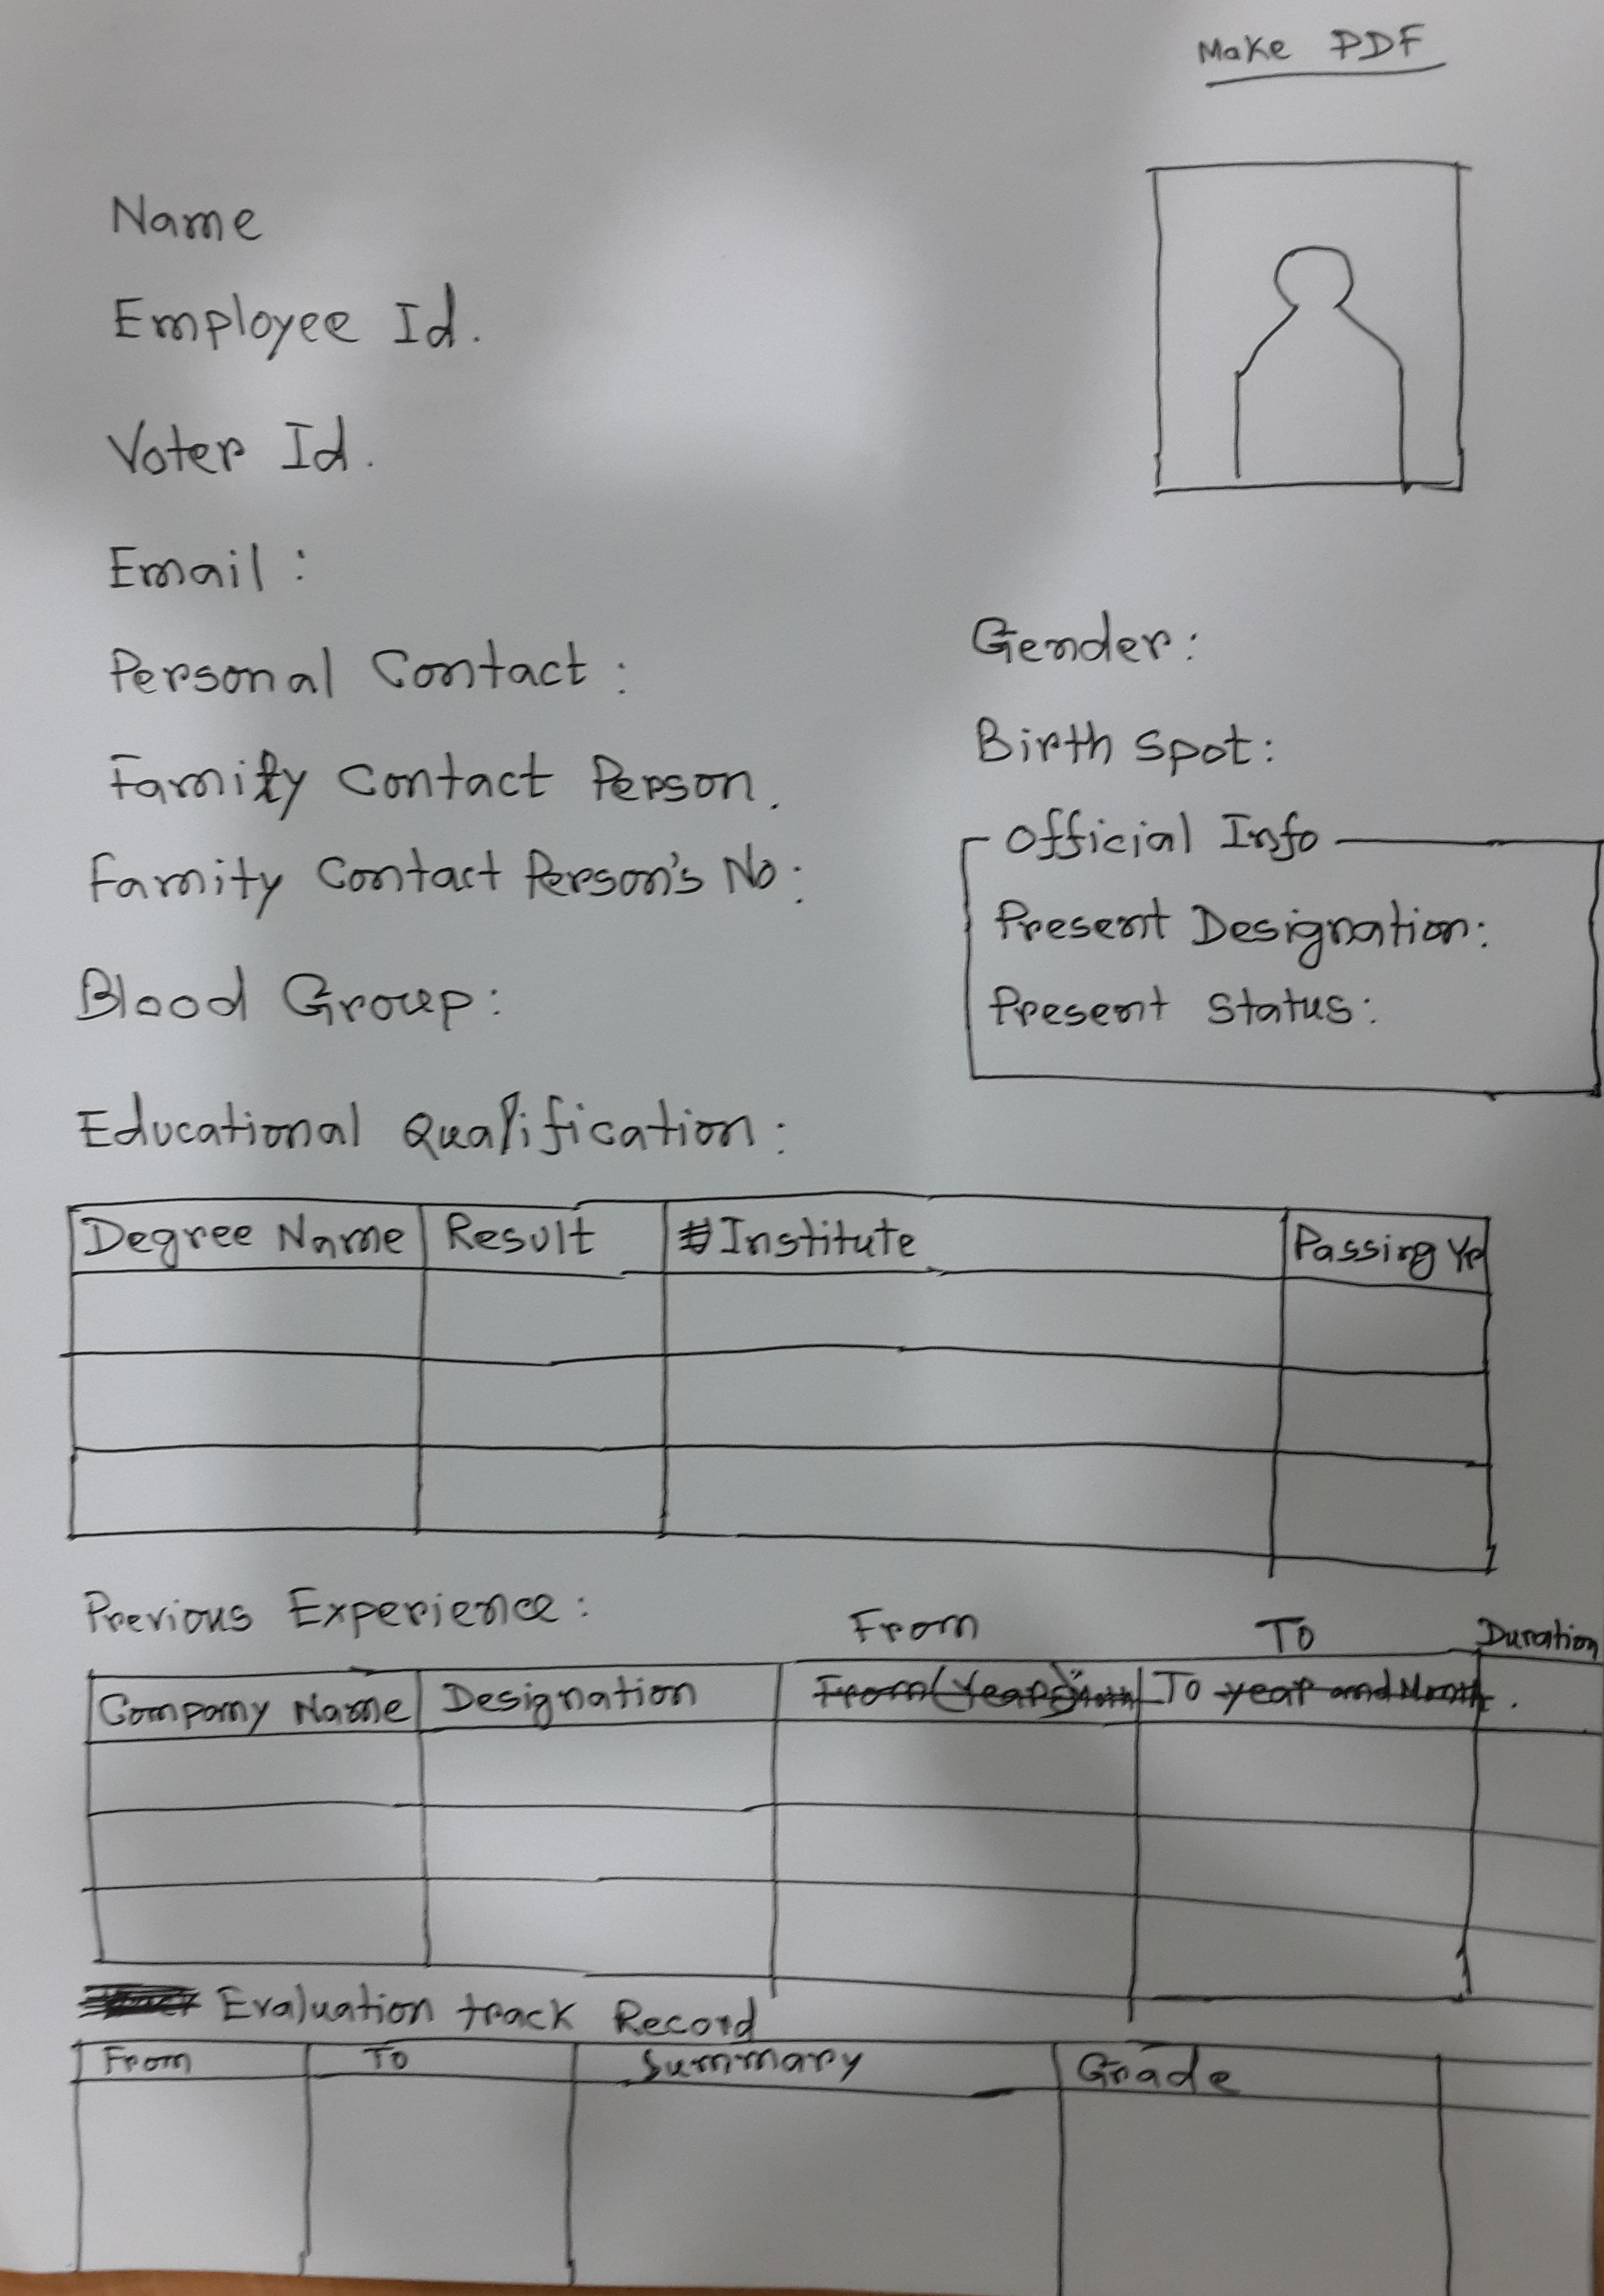 Make PDF
Name
Employee Id.
Voter Id.
Email :
Personal Contact :
Family Contact Person.
Family Contact Person's No :
Blood Group :
Gender :
Birth Spot :
Official Info
Present Designation :
Present Status :
Educational Qualification :
Degree Name Result Institute Passing Yr
Previous Experience :
From To Duration
Company Name Designation From (Year) To year and Month
Evaluation track Record
From To Summary Grade